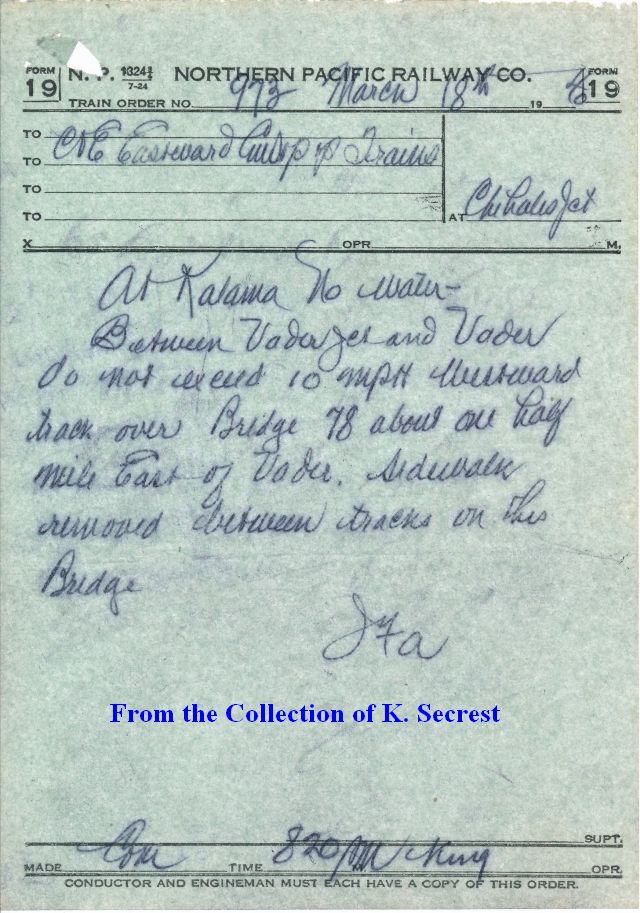 FORM 19 N. P. 13241 7-24 NORTHERN PACIFIC RAILWAY CO. FORM 19
TRAIN ORDER NO. 973 March 18th 19
TO
TO C&E Eastward Trains
TO
TO AT Chehalis Jct
X OPR M.
At Kalama No water-
Between Vader Jct and Vader
do not exceed 10 mpH Westward
track over Bridge 78 about one half
mile East of Vader. Sidewalk
removed between tracks on this
Bridge
JFA
From the Collection of K. Secrest
SUPT.
MADE Com TIME 820 PM King OPR.
CONDUCTOR AND ENGINEMAN MUST EACH HAVE A COPY OF THIS ORDER.